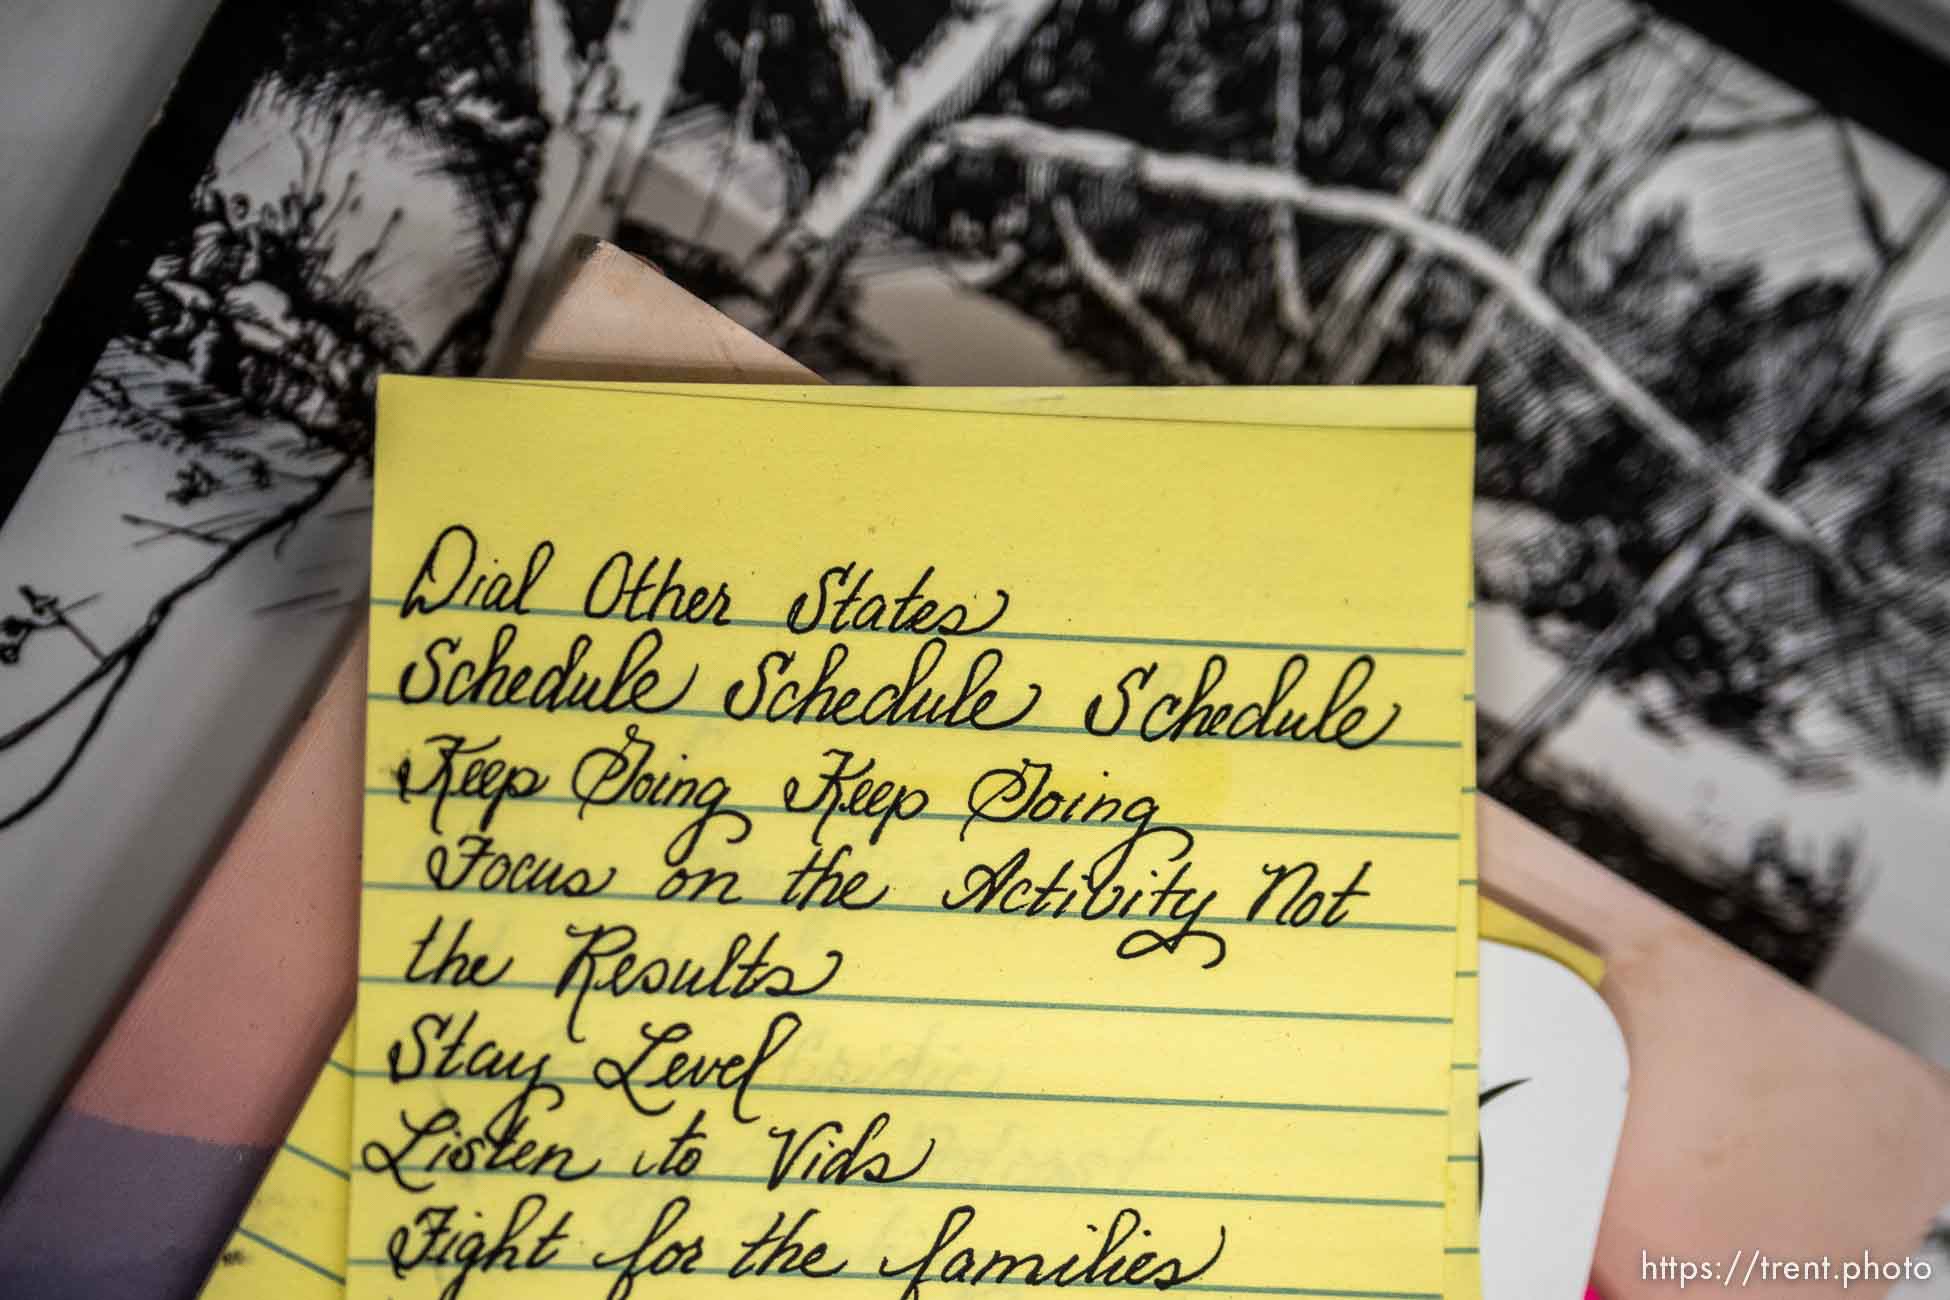 Dial Other States
Schedule Schedule Schedule
Keep Going Keep Going
Focus on the Activity Not
the Results
Stay Level
Listen to Vids
Fight for the families
https://trent.photo